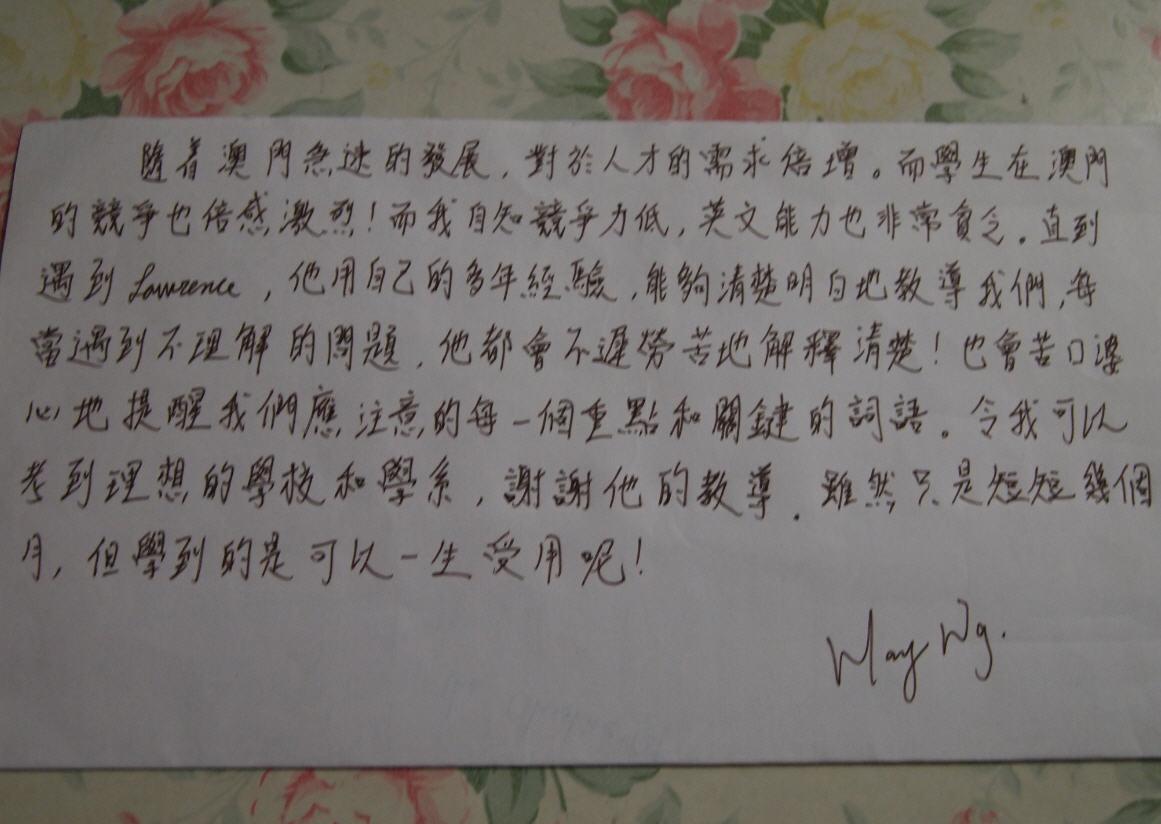 隨着澳門急速的發展，對於人才的需求倍增。而學生在澳門
的競爭也倍感激烈！而我自知競爭力低，英文能力也非常貧乏。直到
遇到Lawrence，他用自己的多年經驗，能夠清楚明白地教導我們，每
當遇到不理解的問題，他都會不遲勞苦地解釋清楚！也會苦口婆
心地提醒我們應注意的每一個重點和關鍵的詞語。令我可以
考到理想的學校和學系，謝謝他的教導。雖然只是短短幾個
月，但學到的是可以一生受用呢！
May Ng.